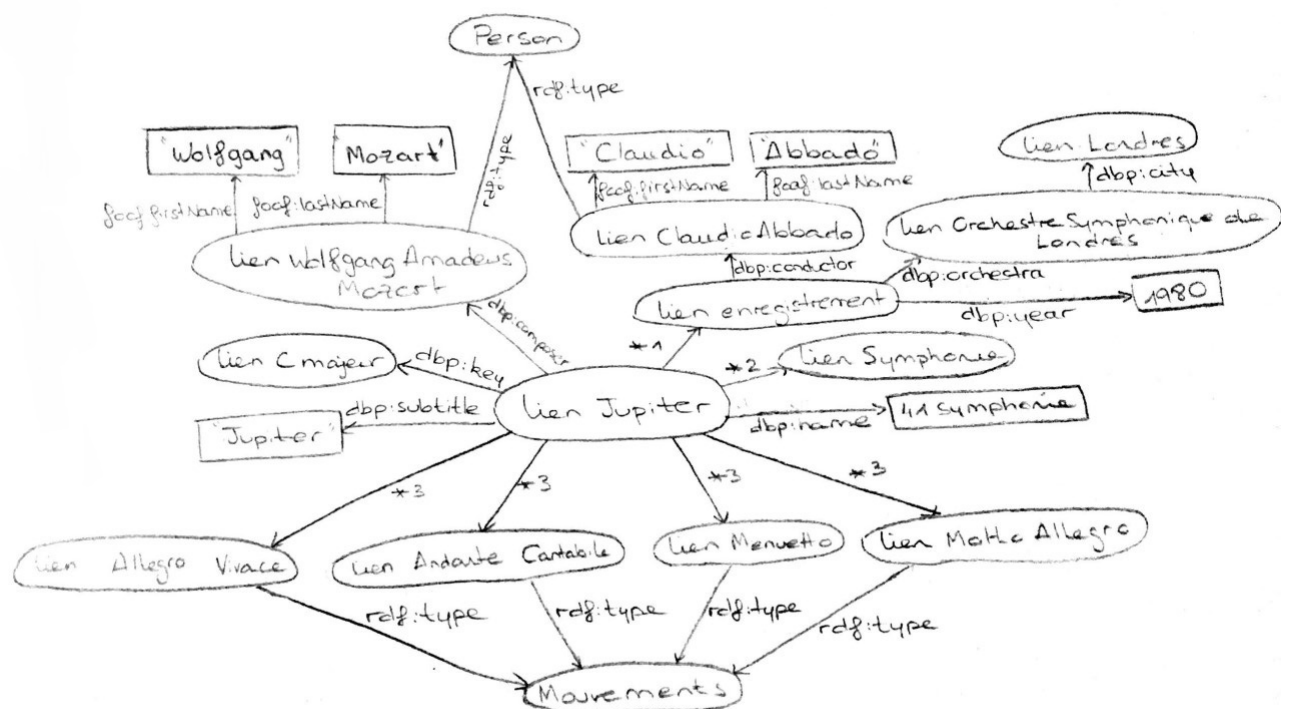 Person
rdf:type
rdf:type
"Wolfgang"
"Mozart"
"Claudio"
"Abbado"
lien Londres
foaf:firstName
foaf:lastName
foaf:firstName
foaf:lastName
dbp:city
lien Wolfgang Amadeus
Mozart
lien Claudio Abbado
lien Orchestre Symphonique de
Londres
dbp:conductor
dbp:orchestra
lien enregistrement
1980
dbp:year
dbp:composer
*1
lien C majeur
dbp:key
*2
lien Symphonie
lien Jupiter
dbp:subtitle
"Jupiter"
dbp:name
41 symphonie
*3
*3
*3
*3
lien Allegro Vivace
lien Andante Cantabile
lien Menuetto
lien Molto Allegro
rdf:type
rdf:type
rdf:type
rdf:type
Mouvements